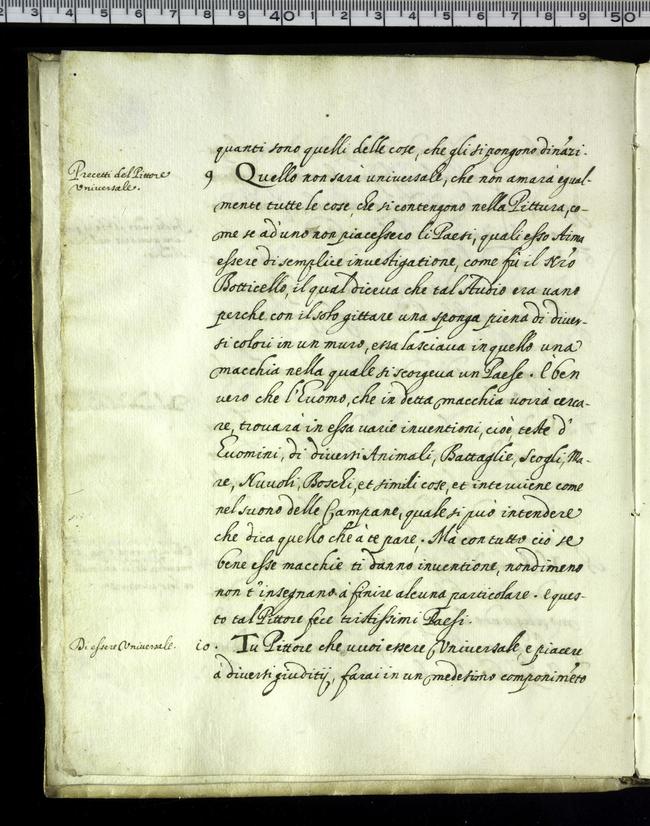 quanti sono quelli delle cose, che gli si pongono dinãzi.
Precetti del Pittore
Universale.
9 Quello non sarà universale, che non amarà egual-
mente tutte le cose, che si contengono nella Pittura, co-
me se ad uno non piacessero li Paesi, quali esso stima
essere di semplice investigatione, come fù il Nr̃o
Botticello, il qual diceva che tal studio era vano
perche con il solo gittare una sponga piena di diver-
si colori in un muro, essa lasciava in quello una
macchia nella quale si scorgeva un Paese. E ben
vero che l'Huomo, che in detta macchia vorrà cerca-
re, trovarà in essa varie inventioni, cioè teste d'
Huomini, di diversi Animali, Battaglie, Scogli, Ma-
re, Nuvoli, Boschi, et simili cose, et interviene come
nel suono delle Campane, quale si può intendere
che dica quello che à te pare. Mà con tutto ciò se
bene esse macchie ti danno inventione, nondimeno
non t'insegnano à finire alcuna particolare. e ques-
to tal Pittore fece tristissimi Paesi.
Di essere Universale.
10. Tu Pittore che vuoi essere Universale, e piacere
à diversi giuditij, farai in un medesimo componim̃eto